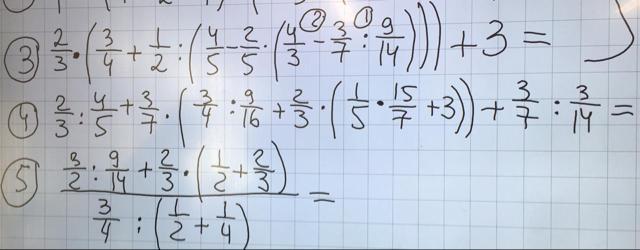 ③ 2/3 · (3/4 + 1/2 : (4/5 - 2/5 · (4/3 -② 3/7 :① 9/14))) + 3 =
④ 2/3 : 4/5 + 3/7 · (3/4 : 9/16 + 2/3 · (1/5 · 15/7 + 3)) + 3/7 : 3/14 =
⑤ (3/2 : 9/14 + 2/3 · (1/2 + 2/3)) / (3/4 : (1/2 + 1/4)) =